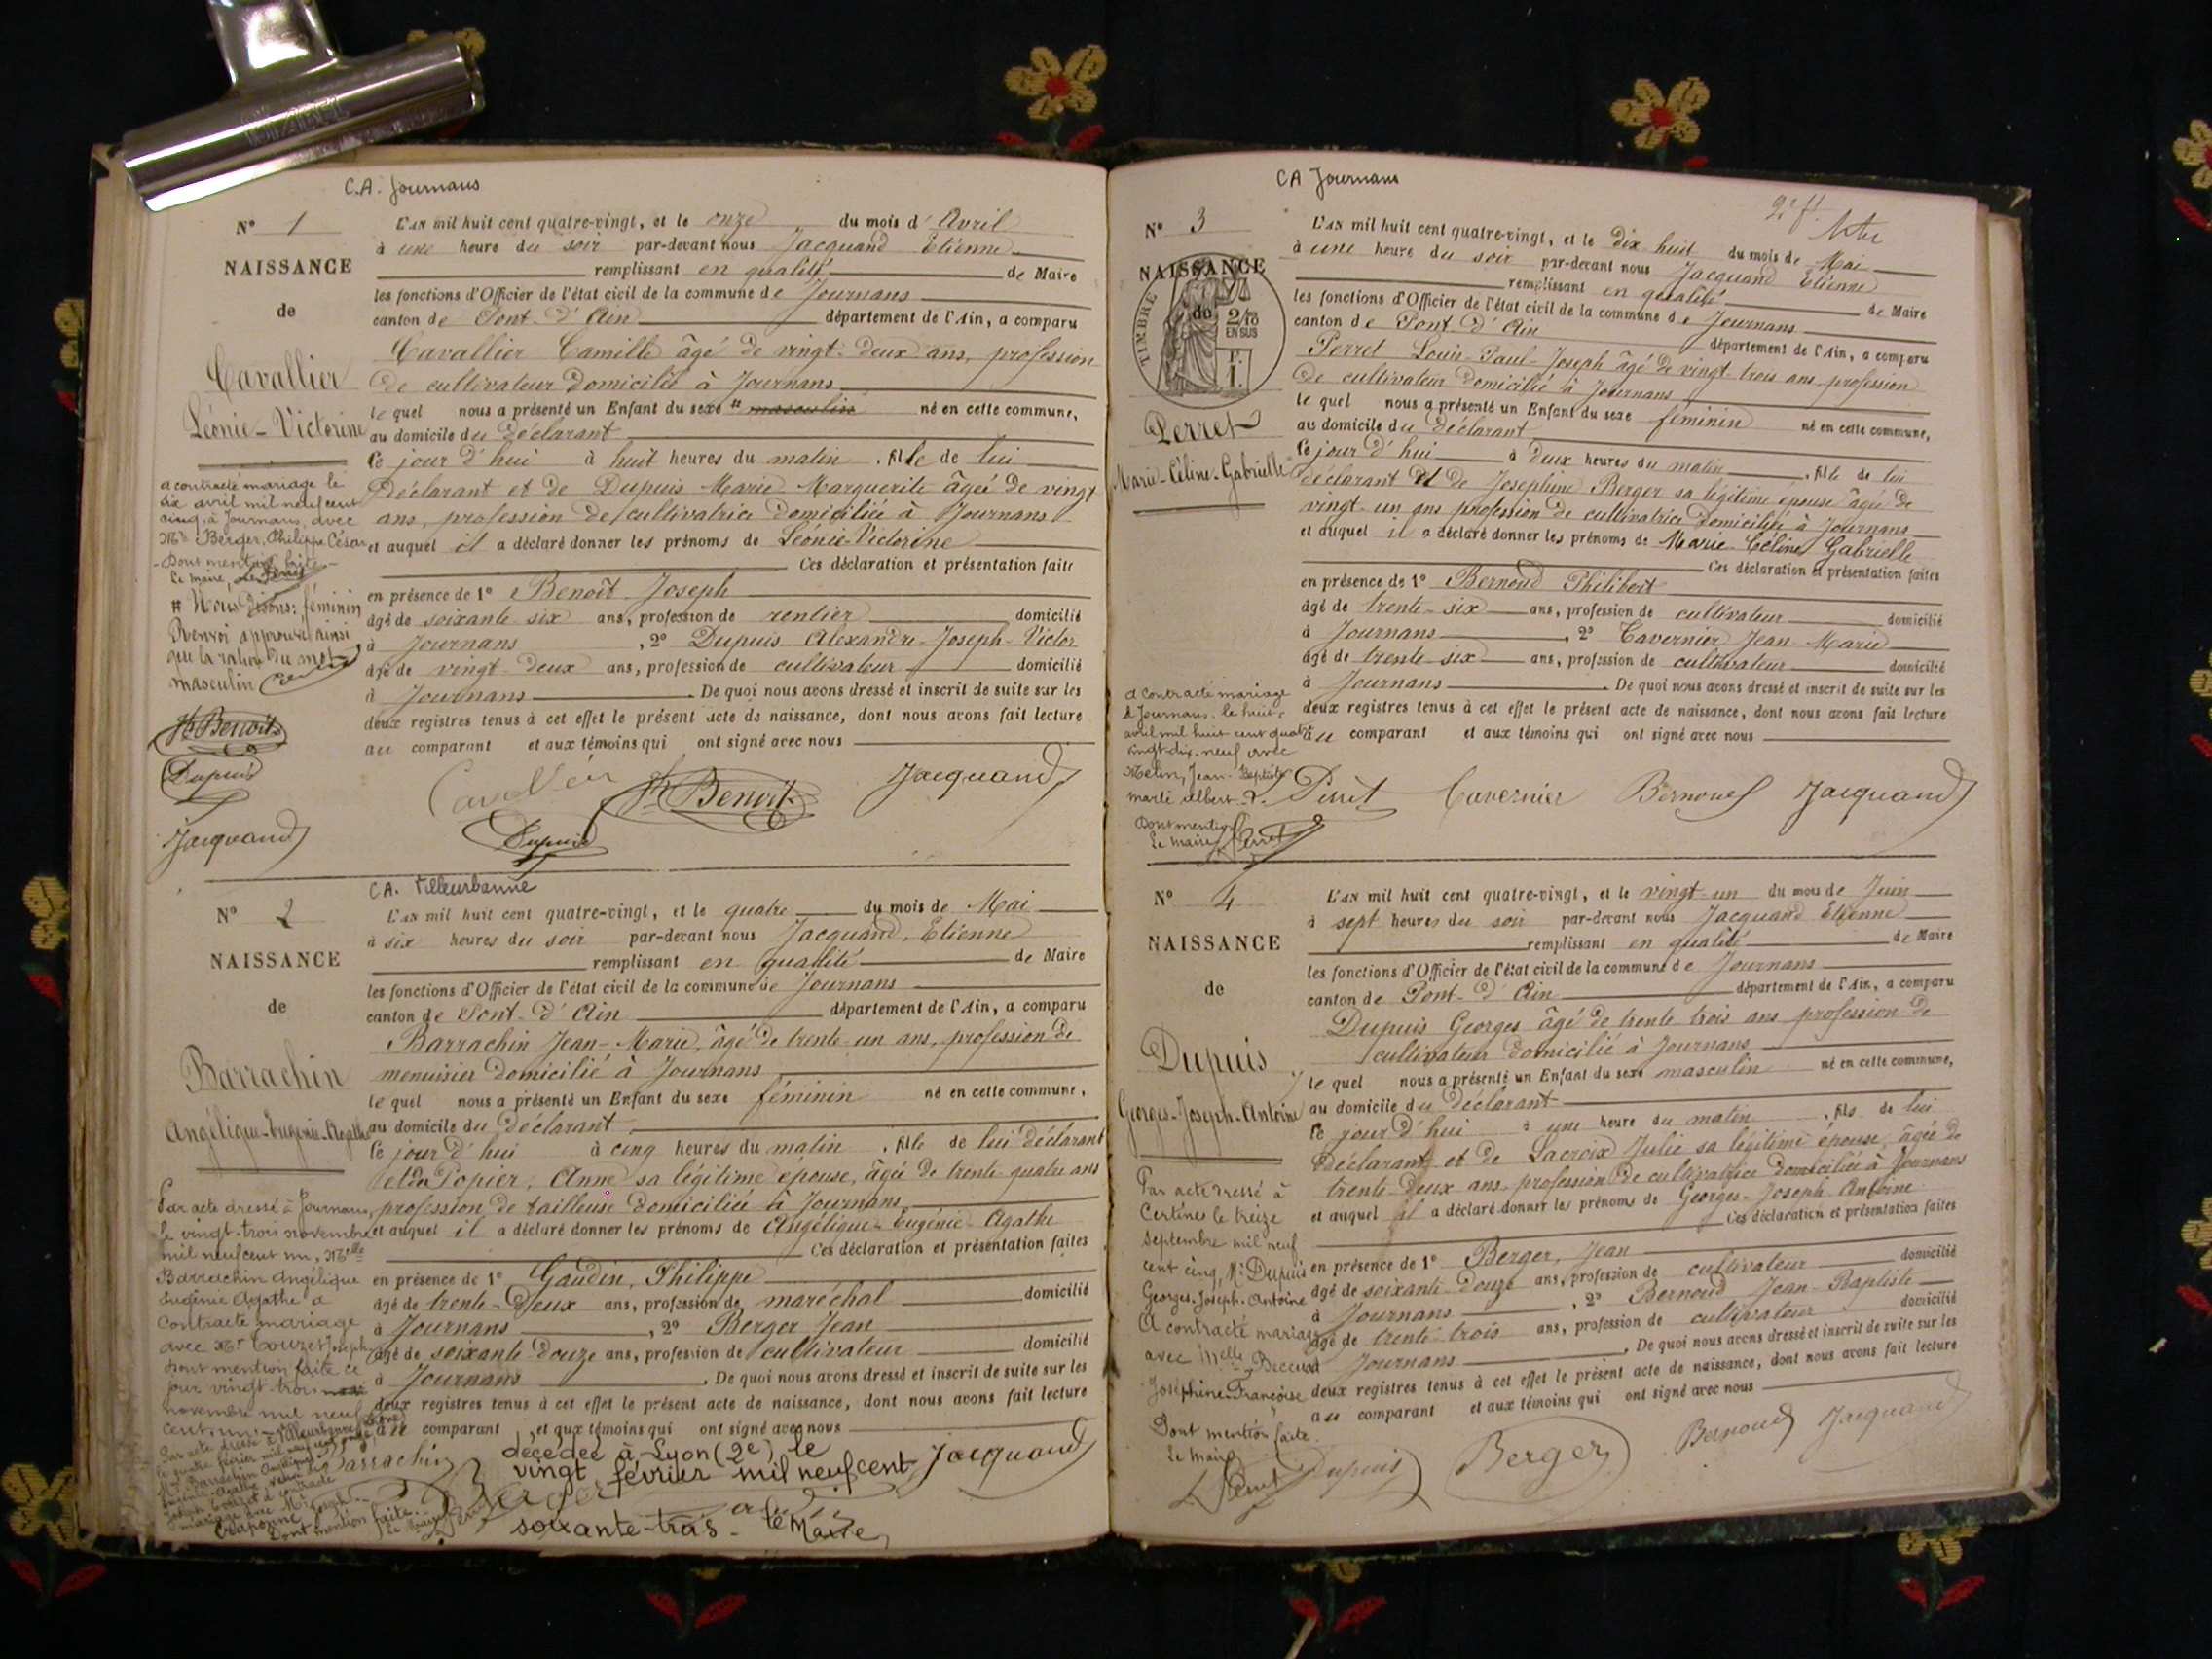 C.A. Journans
N° 1
NAISSANCE
de
Cavallier
Léonie-Victorine
L'AN mil huit cent quatre-vingt, et le onze du mois d'Avril
à une heure du soir par-devant nous Jacquand Etienne
remplissant en qualité de Maire
les fonctions d'Officier de l'état civil de la commune de Journans
canton de Pont-d'Ain département de l'Ain, a comparu
Cavallier Camille âgé de vingt-deux ans, profession
de cultivateur domicilié à Journans
le quel nous a présenté un Enfant du sexe # masculin né en cette commune,
au domicile du déclarant
ce jour d'hui à huit heures du matin, fille de lui
déclarant et de Dupuis Marie Marguerite âgée de vingt
ans, profession de cultivatrice domiciliée à Journans
et auquel il a déclaré donner les prénoms de Léonie-Victorine
Ces déclaration et présentation faite
en présence de 1° Benoît Joseph
âgé de soixante six ans, profession de rentier domicilié
à Journans, 2° Dupuis Alexandre-Joseph-Victor
âgé de vingt-deux ans, profession de cultivateur domicilié
à Journans. De quoi nous avons dressé et inscrit de suite sur les
deux registres tenus à cet effet le présent acte de naissance, dont nous avons fait lecture
au comparant et aux témoins qui ont signé avec nous
a contracté mariage le
six avril mil neuf cent
cinq, à Journans, avec
Mr Berger, Philippe César
Dont mention faite
Le maire,
# Nous disons: féminin
Renvoi approuvé ainsi
que la rature du mot
masculin
Jh Benoit
Dupuis
Jacquand
Cavallier Jh Benoit Jacquand
Dupuis
C.A. Villeurbanne
N° 2
NAISSANCE
de
Barrachin
Angélique-Eugénie-Agathe
L'AN mil huit cent quatre-vingt, et le quatre du mois de Mai
à six heures du soir par-devant nous Jacquand, Etienne
remplissant en qualité de Maire
les fonctions d'Officier de l'état civil de la commune de Journans
canton de Pont-d'Ain département de l'Ain, a comparu
Barrachin Jean-Marie, âgé de trente-un ans, profession de
menuisier domicilié à Journans
le quel nous a présenté un Enfant du sexe féminin né en cette commune,
au domicile du déclarant
ce jour d'hui à cinq heures du matin, fille de lui déclarant
et de Popier, Anne sa légitime épouse, âgée de trente-quatre ans
profession de tailleuse domiciliée à Journans
et auquel il a déclaré donner les prénoms de Angélique-Eugénie-Agathe
Ces déclaration et présentation faites
en présence de 1° Gaudin, Philippe
âgé de trente-deux ans, profession de maréchal domicilié
à Journans, 2° Berger Jean
âgé de soixante-douze ans, profession de cultivateur domicilié
à Journans. De quoi nous avons dressé et inscrit de suite sur les
deux registres tenus à cet effet le présent acte de naissance, dont nous avons fait lecture
au comparant et aux témoins qui ont signé avec nous
Par acte dressé à Journans,
le vingt-trois novembre
mil neuf cent un, Melle
Barrachin Angélique
Eugénie Agathe a
contracté mariage
avec Mr Joseph
dont mention faite ce
jour vingt-trois
novembre mil neuf
cent un
Par acte dressé à Villeurbanne (Rhône)
le quatre février mil neuf cent
Barrachin Angélique
Eugénie-Agathe veuve de
Joseph a contracté
mariage avec Mr Joseph
Craponne
Dont mention faite.
Le maire
Barrachin Jacquand
Berger
décédée à Lyon (2e), le
vingt février mil neuf cent
soixante-trois - le Maire,
CA Journans
2e f.
N° 3
NAISSANCE
de
TIMBRE
2/10
EN SUS
Perret
Marie-Céline-Gabrielle
L'AN mil huit cent quatre-vingt, et le dix huit du mois de Mai
à une heure du soir par-devant nous Jacquand Etienne
remplissant en qualité de Maire
les fonctions d'Officier de l'état civil de la commune de Journans
canton de Pont-d'Ain département de l'Ain, a comparu
Perret Louis-Paul-Joseph âgé de vingt-trois ans profession
de cultivateur domicilié à Journans
le quel nous a présenté un Enfant du sexe féminin né en cette commune,
au domicile du déclarant
ce jour d'hui à deux heures du matin, fille de lui
déclarant et de Joséphine Berger sa légitime épouse âgée de
vingt-un ans profession de cultivatrice domiciliée à Journans
et auquel il a déclaré donner les prénoms de Marie-Céline-Gabrielle
Ces déclaration et présentation faites
en présence de 1° Bernoud Philibert
âgé de trente-six ans, profession de cultivateur domicilié
à Journans, 2° Tavernier Jean-Marie
âgé de trente-six ans, profession de cultivateur domicilié
à Journans. De quoi nous avons dressé et inscrit de suite sur les
deux registres tenus à cet effet le présent acte de naissance, dont nous avons fait lecture
au comparant et aux témoins qui ont signé avec nous
a contracté mariage
à Journans, le huit
avril mil huit cent quatre
vingt-dix-neuf avec
Jean-Baptiste
Marie Albert
Dont mention
Le maire Perret
Perret Tavernier Bernoud Jacquand
N° 4
NAISSANCE
de
Dupuis
Georges-Joseph-Antoine
L'AN mil huit cent quatre-vingt, et le vingt-un du mois de Juin
à sept heures du soir par-devant nous Jacquand Etienne
remplissant en qualité de Maire
les fonctions d'Officier de l'état civil de la commune de Journans
canton de Pont-d'Ain département de l'Ain, a comparu
Dupuis Georges âgé de trente trois ans profession de
cultivateur domicilié à Journans
le quel nous a présenté un Enfant du sexe masculin né en cette commune,
au domicile du déclarant
ce jour d'hui à une heure du matin, fils de lui
déclarant et de Lacroix Julie sa légitime épouse, âgée de
trente-deux ans profession de cultivatrice domiciliée à Journans
et auquel il a déclaré donner les prénoms de Georges-Joseph-Antoine
Ces déclaration et présentation faites
en présence de 1° Berger, Jean
âgé de soixante-douze ans, profession de cultivateur domicilié
à Journans, 2° Bernoud Jean-Baptiste
âgé de trente-trois ans, profession de cultivateur domicilié
à Journans. De quoi nous avons dressé et inscrit de suite sur les
deux registres tenus à cet effet le présent acte de naissance, dont nous avons fait lecture
au comparant et aux témoins qui ont signé avec nous
Par acte dressé à
Certines le treize
septembre mil neuf
cent cinq, Mr Dupuis
Georges-Joseph-Antoine
a contracté mariage
avec Melle
Joséphine-Françoise
Dont mention faite.
Le Maire
Perret
Dupuis Berger Bernoud Jacquand